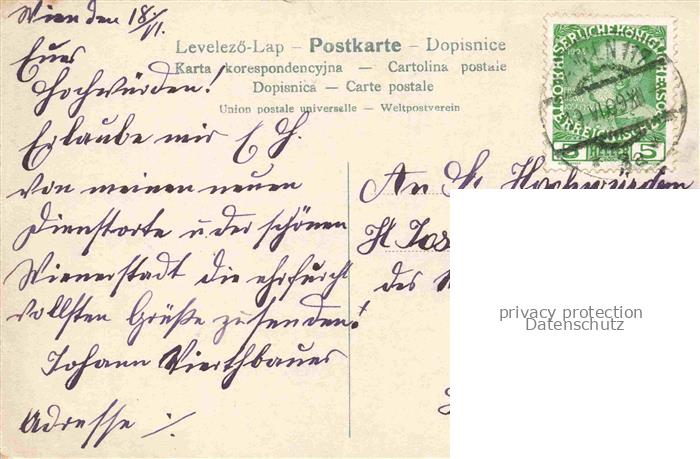 Wien den 18/VI.
Euer
Hochwürden!
Erlaube mir E H.
von meinen neuen
Dienstorte u. der schönen
Wienerstadt die ehrfurcht
vollsten Grüße zu senden!
Johann Vierthbauer
Adresse ./.
Levelező-Lap – Postkarte – Dopisnice
Karta korespondencyjna — Cartolina postale
Dopisnica — Carte postale
Union postale universelle — Weltpostverein
5 HELLER 5
An Sr. Hochwürden
H Jos
des
privacy protection
Datenschutz